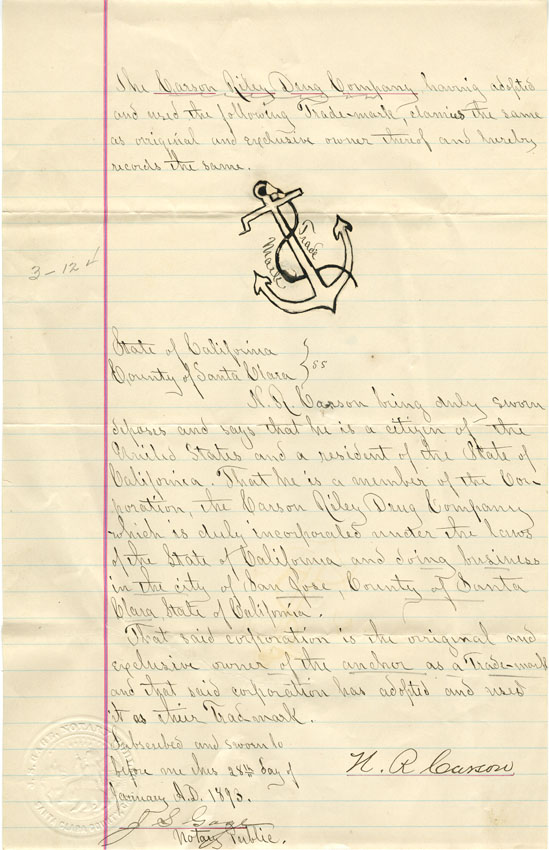 The Carson Riley Drug Company, having adopted
and used the following Trade-mark, claims the same
as original and exclusive owner thereof and hereby
records the same.
Trade
Mark
3-12
State of California
County of Santa Clara } ss
N. R Carson being duly sworn
deposes and says that he is a citizen of the
United States and a resident of the State of
California. That he is a member of the Cor-
poration, the Carson Riley Drug Company
which is duly incorporated under the laws
of the State of California and doing business
in the city of San Jose, County of Santa
Clara, State of California.
That said corporation is the original and
exclusive owner of the anchor as a Trade-mark
and that said corporation has adopted and uses
it as their Trad-mark.
Subscribed and sworn to
before me this 28th day of
January A.D. 1893.
N. R Carson
Notary Public.